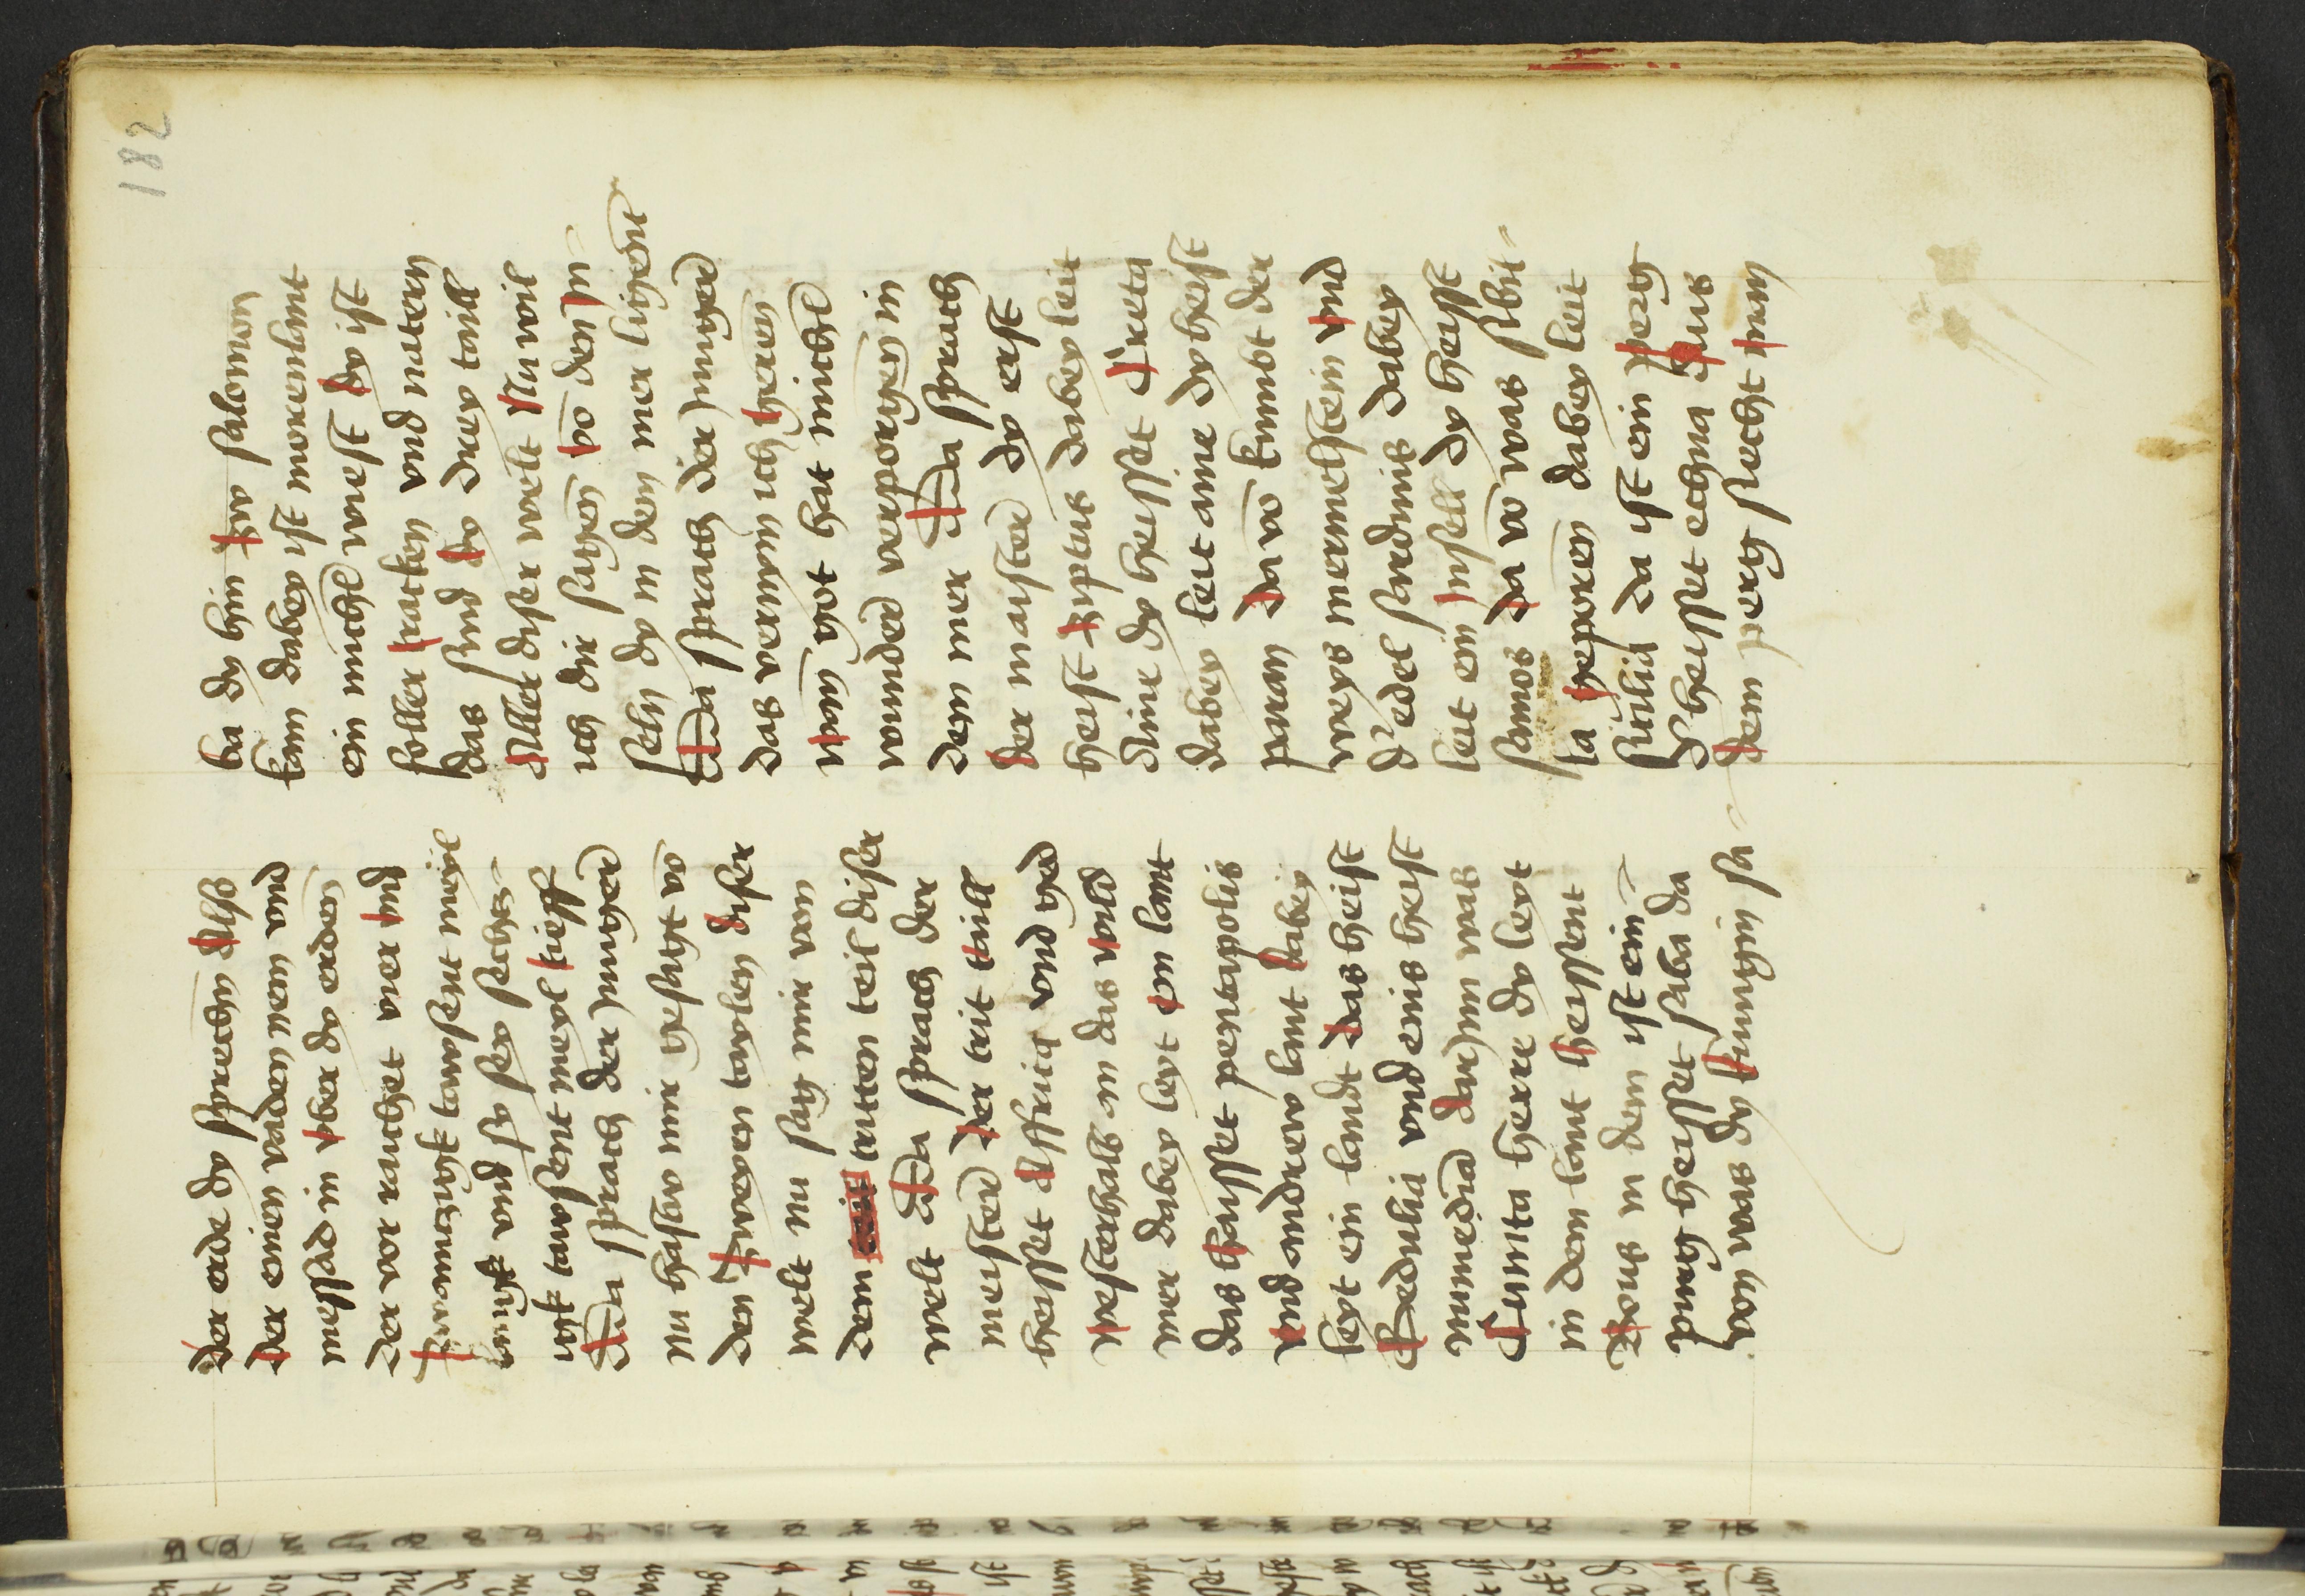 182
der erde dy sprechn̄ Also
der einen vaden nem vnd
messad in vber dy erdn̄
der vor rauchet vier vnd
zwainczigk tawsent meyl
langk vnd sy sey sechz-
igk tawsent meyl tieff
Da sprach der junger
nu hastw mir gesagt vō
den zweyen taylen diser
welt nu sag mir von
dem dritten teil diser
welt Da sprach der
meister der trit taill
heisset Affrica vnd get
westerhalb in das wild
mer dabey leyt ein lant
das haisset pentapolis
vnd andrew lant dabey
leyt ein landt das heist
Getulia vnd eins heist
numedia darjnn was
herre dy leyt
in dem lant heissent
in dem ist ein
purg heisset saba da
von was dy kungin sa-
ba dy hin zw salomon
kam dabey ist morenlant
ein michel wuest dy ist
foller tracken vnd natern
das sind dy drey taill
Aller diser welt Nu wil
ich dir sagen vō den jn-
seln dy in dem mer ligent
Da sprach der junger
das vernym ich geren
wann got hat michel
wunder verporgen in
dem mer Da sprach
der maister dy erst
heist ziprus dabey leit
aine dy heisset Creta
dabey leit aine dy heist
paran da vō kumbt der
weys mermelstein vnd
d' edel sardinis dabey
leit ein jnsell dy heisst
samos da vō was sibil-
la geporen dabey leit
sicilia da ist ein perg
d' heisset ethna aus
dem perg siecht man